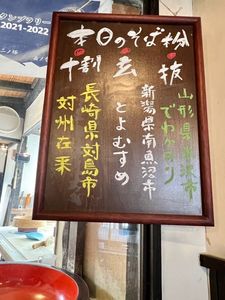 タンプラリー
2021-2022
本日のそば粉
抜
山形県米沢市
でわかおり
玄
新潟県南魚沼市
とよむすめ
十割
長崎県対島市
対州在来